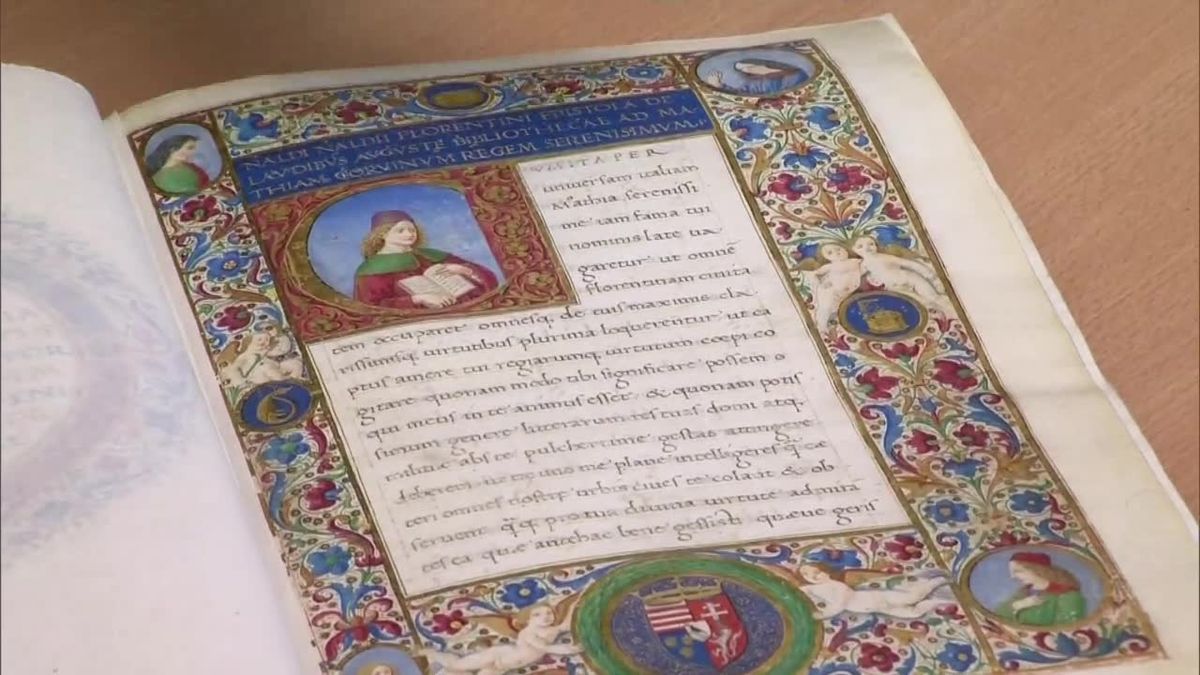 NALDI NALDII FLORENTINI EPISTOLA DE
LAVDIBVS AVGVSTE BIBLIOTHECAE AD MA-
THIAM CORVINVM REGEM SERENISIMVM
VSITA PER
universam italiam
Mathia serenissi
me iam fama tui
nominis late ua
garetur: ut omnē
florentinam ciuita
tem occuparet omnesq; de tuis maximis cla
rissimisq; uirtutibus plurima loquerentur: ut ca
ptus amore tui regiarumq; uirtutum coepi co
gitare quonam modo tibi significare possem o
qui meus in te animus esset: & quonam potis
simum genere litterarum res tuas domi atq;
militiae abs te pulcherrime gestas attingere
deberem: ut tu uno me plane intelligeres
teri omnes nostrę urbis ciues te colāt & ob
seruent pro tua diuina uirtute
tes ea quae antehac bene gessisti quaeue geris